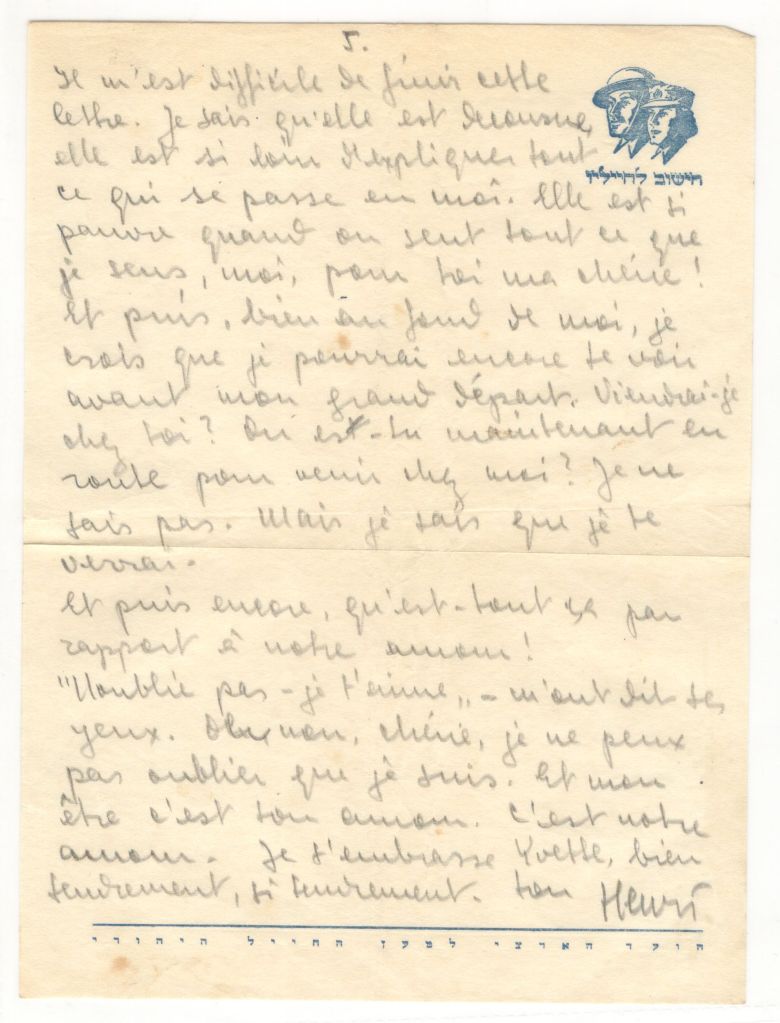 5.
Il m'est difficile de finir cette
lettre. Je sais qu'elle est decousue,
elle est si loin d'expliquer tout
הישוב לחייליו
ce qui se passe en moi. Elle est si
pauvre quand on sent tout ce que
je sens, moi, pour toi ma chérie!
Et puis, bien au fond de moi, je
crois que je pourrai encore te voir
avant mon grand départ. Viendrai-je
chez toi? Ou es-tu maintenant en
route pour venir chez moi? Je ne
sais pas. Mais je sais que je te
verrai.
Et puis encore, qu'est-tout ça par
rapport à notre amour!
"N'oublie pas - je t'aime" - m'ont dit tes
yeux. Oh, non, chérie, je ne peux
pas oublier que je suis. Et mon
être c'est ton amour. C'est notre
amour. Je t'embrasse Yvette, bien
tendrement, si tendrement. ton Henri
הועד הארצי למען החייל היהודי